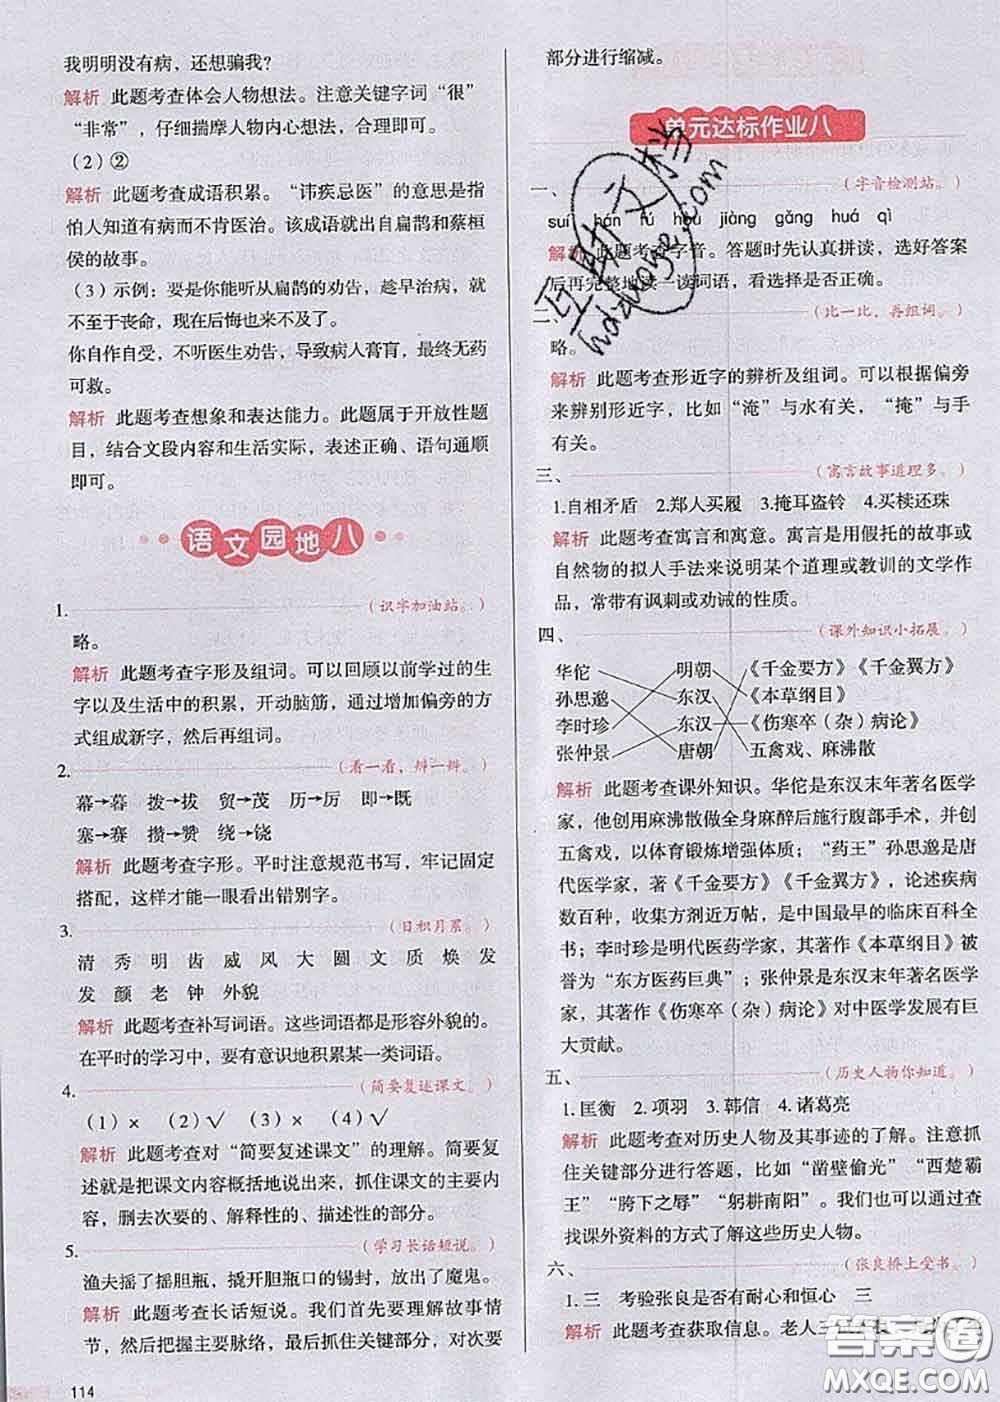 我明明没有病，还想骗我？
解析 此题考查体会人物想法。注意关键字词“很”
“非常”，仔细揣摩人物内心想法，合理即可。
（2）②
解析 此题考查成语积累。“讳疾忌医”的意思是指
怕人知道有病而不肯医治。该成语就出自扁鹊和蔡桓
侯的故事。
（3）示例：要是你能听从扁鹊的劝告，趁早治病，就
不至于丧命，现在后悔也来不及了。
你自作自受，不听医生劝告，导致病人膏肓，最终无药
可救。
解析 此题考查想象和表达能力。此题属于开放性题
目，结合文段内容和生活实际，表述正确、语句通顺
即可。
语文园地八
1.（识字加油站。）
略。
解析 此题考查字形及组词。可以回顾以前学过的生
字以及生活中的积累，开动脑筋，通过增加偏旁的方
式组成新字，然后再组词。
2.（看一看，辩一辩。）
幕→暮 拨→拔 贸→茂 历→厉 即→既
塞→赛 攒→赞 绕→铙
解析 此题考查字形。平时注意规范书写，牢记固定
搭配，这样才能一眼看出错别字。
3.（日积月累。）
清 秀 明 齿 威 风 大 圆 文 质 焕 发
发 颜 老 钟 外貌
解析 此题考查补写词语。这些词语都是形容外貌的。
在平时的学习中，要有意识地积累某一类词语。
4.（简要复述课文。）
（1）× （2）√ （3）× （4）√
解析 此题考查对“简要复述课文”的理解。简要复
述就是把课文内容概括地说出来，抓住课文的主要内
容，删去次要的、解释性的、描述性的部分。
5.（学习长话短说。）
渔夫摇了摇胆瓶，撬开胆瓶口的锡封，放出了魔鬼。
解析 此题考查长话短说。我们首先要理解故事情
节，然后把握主要脉络，最后抓住关键部分，对次要
114
部分进行缩减。
单元达标作业八
一、（字音检测站。）
suí hán rú hòu jiàng gǎng huá qì
解析 此题考查字音。答题时先认真拼读，选好答案
后再完整地读一读词语，看选择是否正确。
二、（比一比，再组词。）
略。
解析 此题考查形近字的辨析及组词。可以根据偏旁
来辨别形近字，比如“淹”与水有关，“掩”与手
有关。
三、（寓言故事道理多。）
1.自相矛盾 2.郑人买履 3.掩耳盗铃 4.买椟还珠
解析 此题考查寓言和寓意。寓言是用假托的故事或
自然物的拟人手法来说明某个道理或教训的文学作
品，常带有讽刺或劝诫的性质。
四、（课外知识小拓展。）
华佗 明朝 《千金要方》《千金翼方》
孙思邈 东汉 《本草纲目》
李时珍 东汉 《伤寒卒（杂）病论》
张仲景 唐朝 五禽戏、麻沸散
解析 此题考查课外知识。华佗是东汉末年著名医学
家，他创用麻沸散做全身麻醉后施行腹部手术，并创
五禽戏，以体育锻炼增强体质；“药王”孙思邈是唐
代医学家，著《千金要方》《千金翼方》，论述疾病
数百种，收集方剂近万帖，是中国最早的临床百科全
书；李时珍是明代医药学家，其著作《本草纲目》被
誉为“东方医药巨典”；张仲景是东汉末年著名医学
家，其著作《伤寒卒（杂）病论》对中医学发展有巨
大贡献。
五、（历史人物你知道。）
1.匡衡 2.项羽 3.韩信 4.诸葛亮
解析 此题考查对历史人物及其事迹的了解。注意抓
住关键部分进行答题，比如“凿壁偷光”“西楚霸
王”“胯下之辱”“躬耕南阳”。我们也可以通过查
找课外资料的方式了解这些历史人物。
六、（张良桥上受书。）
1.三 考验张良是否有耐心和恒心 三
解析 此题考查获取信息。老人三
互助文档
hdzuoye.com
答案圈
MXQE.COM